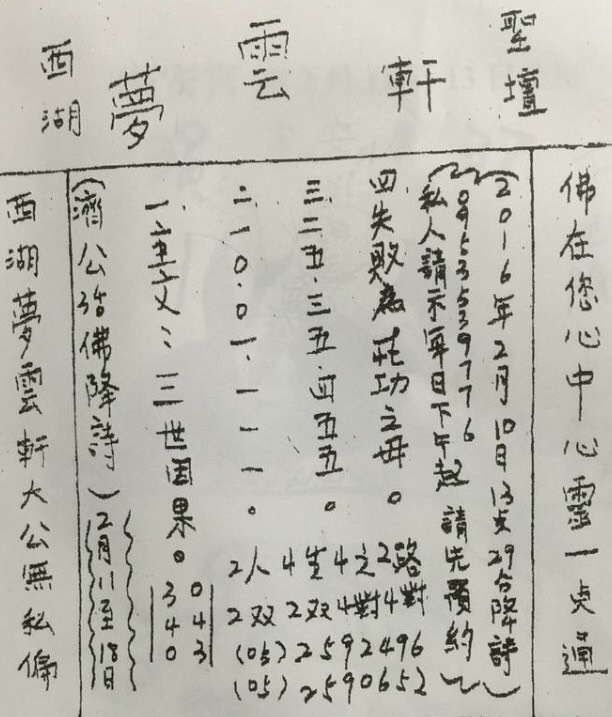 聖壇
軒
雲
夢
西湖
佛在您心中心靈一点通
(2016年2月10日13点29分降詩)
0953539776
私人請示單日下午起請先預約
四失敗為成功之母。
三.三五.三五.四五五。
二.一0.0一.一一一。
2人4生4之2路
2双2双4對4對
(05)2592496
(05)2590652
三世因果。
340
043
(濟公活佛降詩)
2月11至18日
西湖夢雲軒大公無私偏